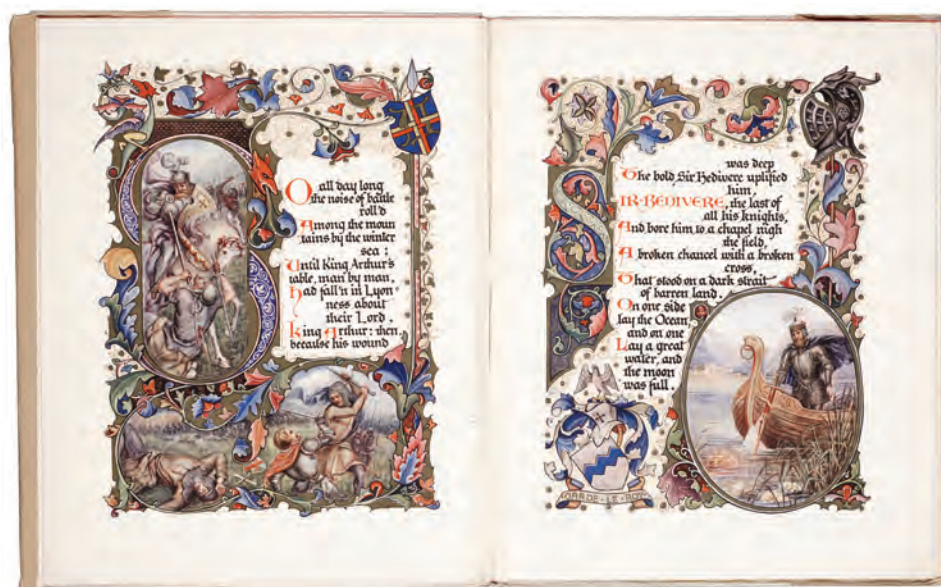 SO all day long
the noise of battle
roll'd
Among the moun
tains by the winter
sea:
Until King Arthur's
table, man by man,
Had fall'n in Lyon-
ness about
their Lord.
King Arthur: then,
because his wound
was deep
The bold Sir Bedivere uplifted
him,
SIR·BEDIVERE, the last of
all his knights,
And bore him to a chapel nigh
the field,
A broken chancel with a broken
cross,
That stood on a dark strait
of barren land.
On one side
lay the Ocean,
and on one
Lay a great
water, and
the moon
was full.
GARDE·LE·ROY